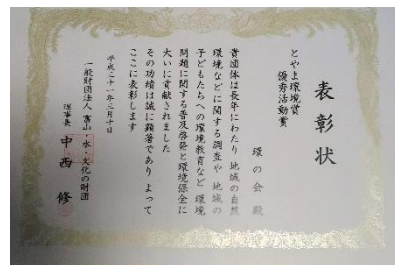 表彰状
とやま環境賞
優秀活動賞
環の会 殿
貴団体は長年にわたり 地域の自然
環境などに関する調査や 地域の
子どもたちへの環境教育など 環境
問題に関する普及啓発と環境保全に
大いに貢献されました
その功績は誠に顕著であり よって
ここに表彰します
平成二十一年二月十日
一般財団法人 富山・水・文化の財団
理事長 中西 修